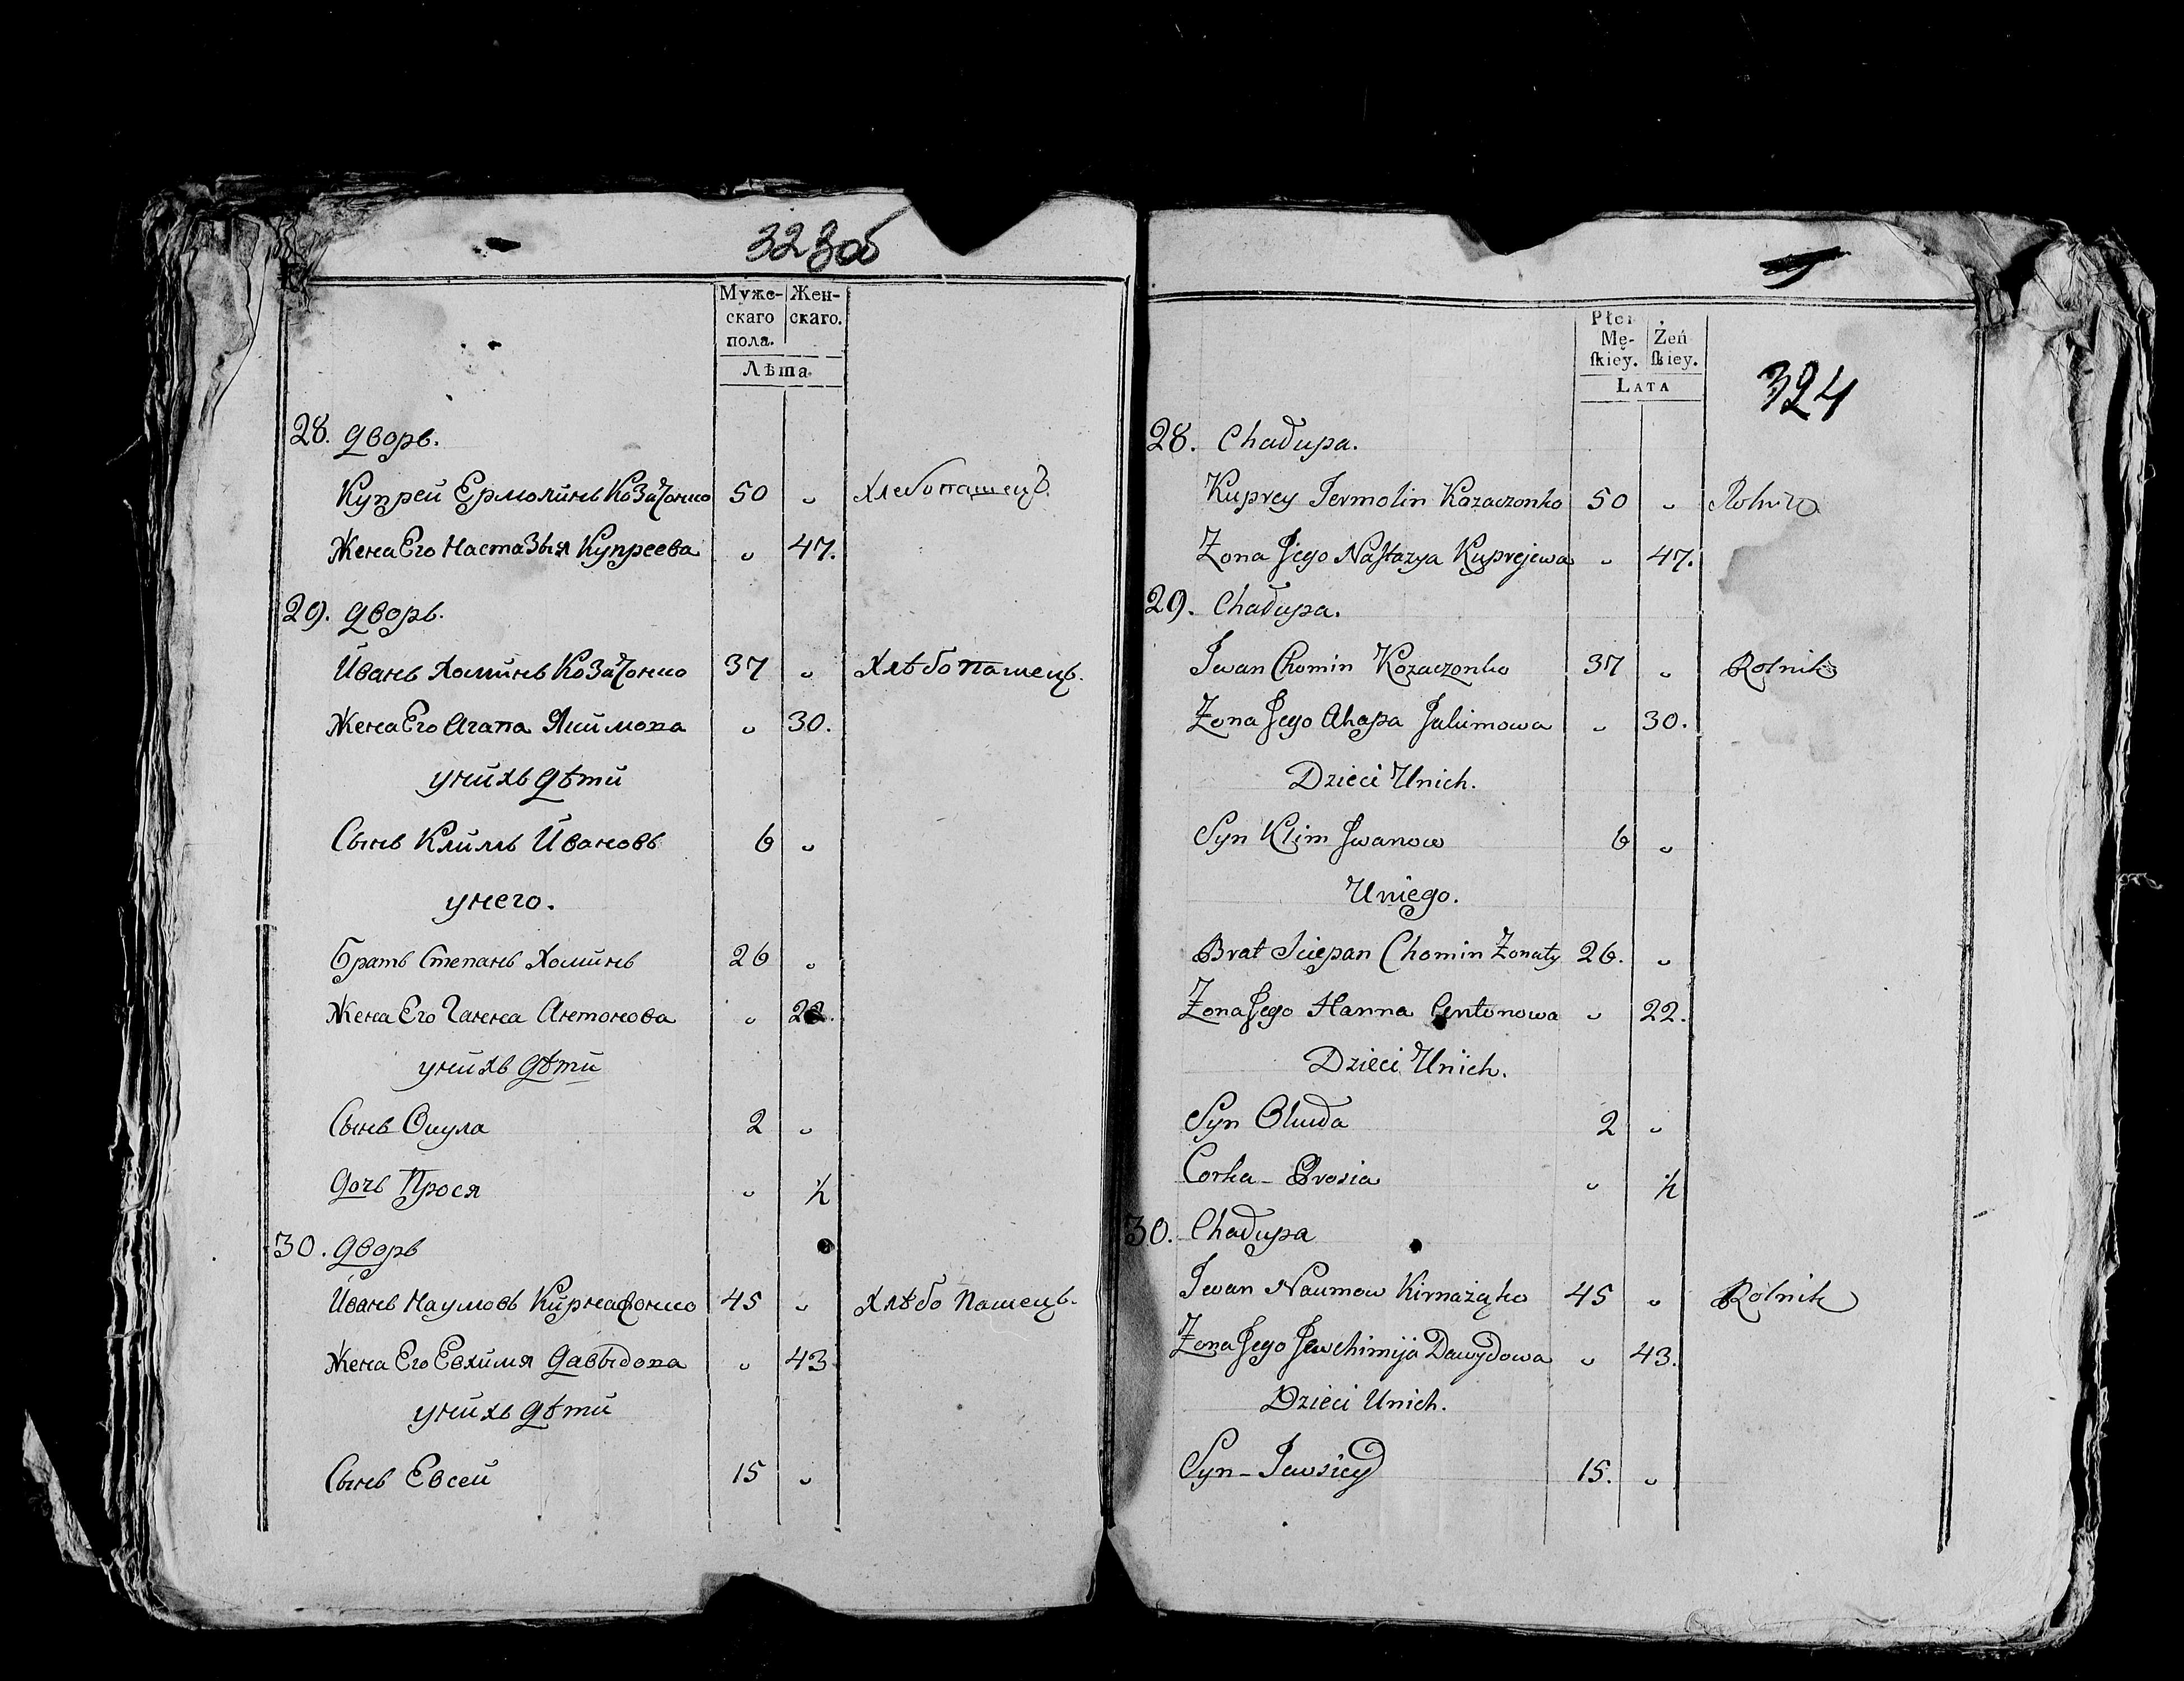 323об
Муже- Жен-
скаго скаго.
пола.
Лѣта.
28. дворъ.
Купрей Ермолинъ Козачонко 50 „ Хлебопашецъ.
Жена Его Настазыя Купреева „ 47.
29. дворъ.
Иванъ Хоминъ Козачонко 37 „ Хлѣбопашецъ.
Жена Его Агапа Якимова „ 30.
у нихъ дѣти
Сынъ Климъ Ивановъ 6 „
у него.
Братъ Степанъ Хоминъ 26 „
Жена Его Ганна Антонова „ 22.
у нихъ дѣти
Сынъ Окула 2 „
Дочь Прося „ ½
30. дворъ
Иванъ Наумовъ 45 „ Хлѣбо пашецъ.
Жена Его Евхимя Давыдова „ 43
у нихъ дѣти
Сынъ Евсей 15 „
324
Płci
Mę- Żeń
ſkiey. ſkiey.
LATA
28. Chałupa.
Kuprey Jermolin Kozaczonko 50 „ Rolnik
Żona Jego Nastazya Kuprejewa „ 47.
29. Chałupa.
Iwan Chomin Kozaczonko 37 „ Rolnik
Żona Jego Ahapa Jakimowa „ 30.
Dzieci Unich.
Syn Klim Iwanow 6 „
Uniego.
Brat Sciepan Chomin Żonaty 26. „
Żona Jego Hanna Antonowa „ 22.
Dzieci Unich.
Syn Okuła 2 „
Corka - Prosia „ ½
30. Chałupa
Iwan Naumow Kirnażąko 45 „ Rolnik
Żona Jego Jewchimija Dawydowa „ 43.
Dzieci Unich.
Syn - Jewsiey 15. „